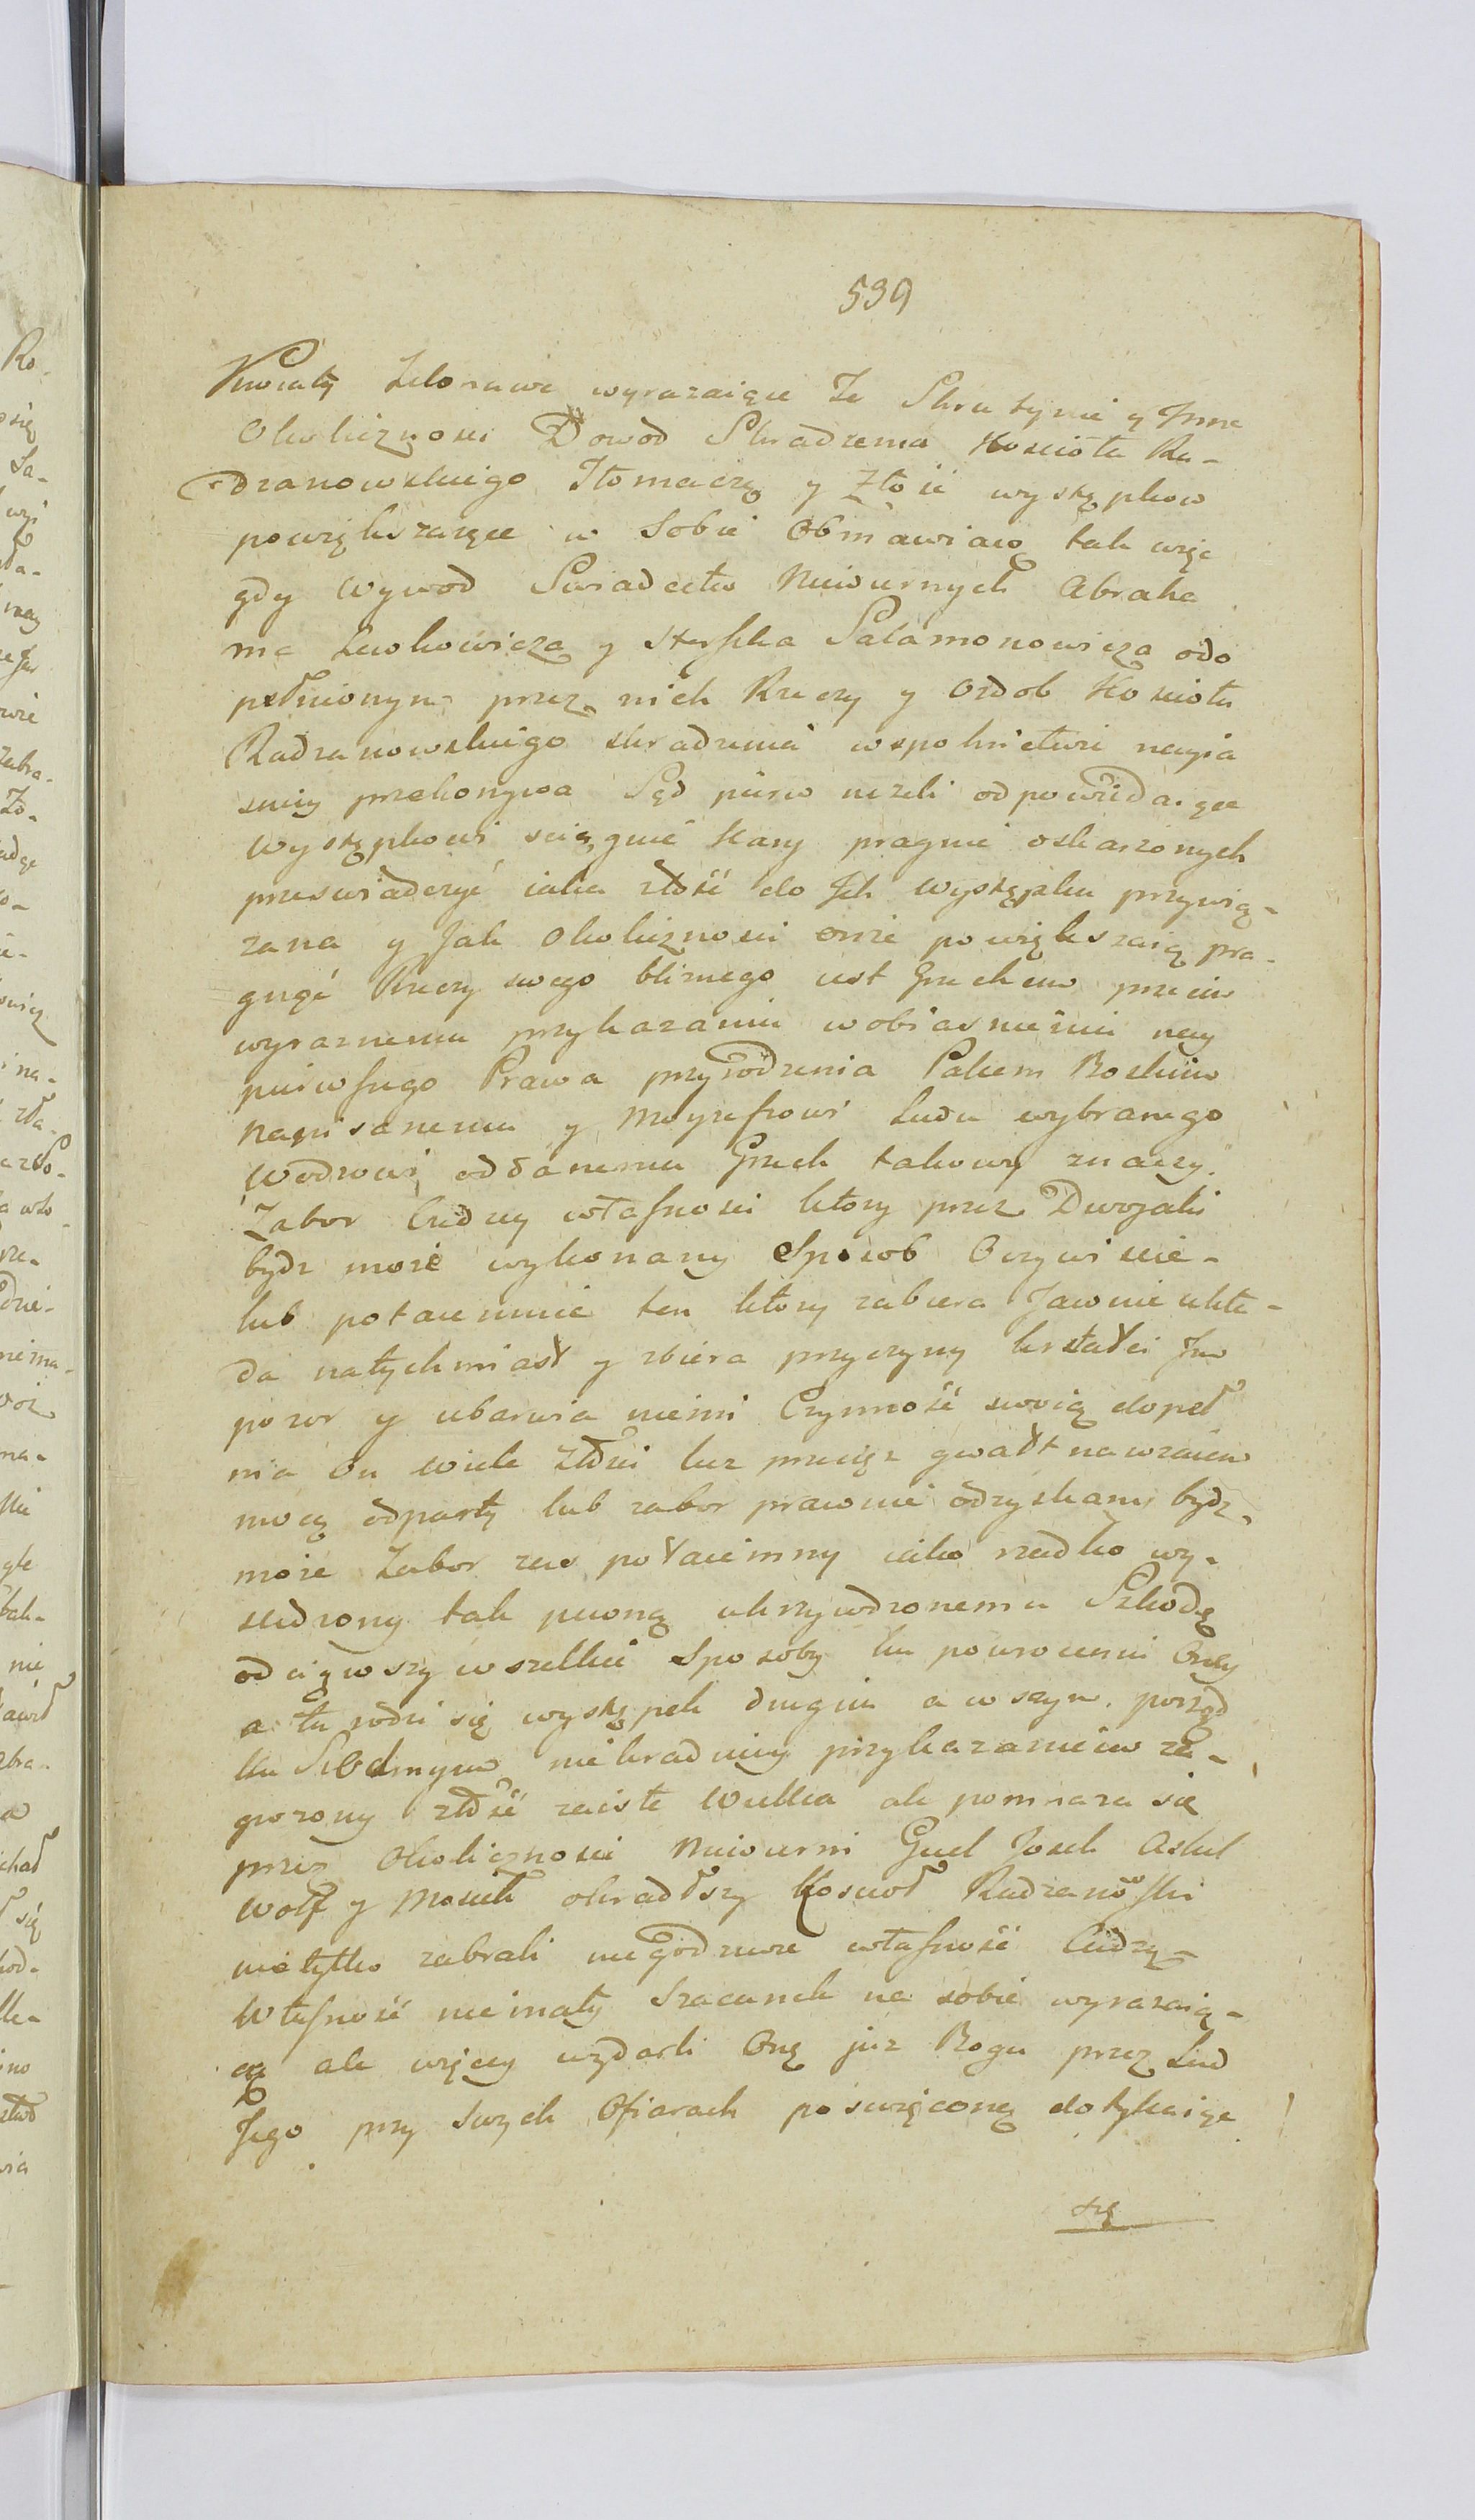 539
Kwiaty Zebrane wyrazaiące Ze Skrutynie y Jnne
Okolicznosci Dowod Skradzenia Koscioła Ra-
dzanowskiego Tłomaczą y Złosć występkow
powiększaiące w Sobie Obmawiaią tak więc
gdy Wywod Swiadectw Niewiernych Abraha
ma Lewkowicza y Herszka Salamonowicza odo
pełnionym przez nich Rzeczy y Ozdob Kosciola
Radzanowskiego skradzenia wspolnictwie nayia
sniey przekonywa Sąd pierw nizeli odpowiedaiące
Występkowi sciągnie kary pragnie oskarzonych
przeswiadczyć iaka złosć do Jch Występku przywią-
zana y Jak Okolicznosci onze powiększaią pra-
gnąć Rzeczy swego blizniego iest Grzechem przeciw
wyraznemu przykazaniu w obiasnieniu nay
pierwszego Prawa przyrodzenia Palcem Boskim
Napisanemu y Moyzeszowi Ludu wybranego
Wodzowi oddanemu Grzech takowy znaczy
Zabor Cudzey własnosci ktory przez Dwojaki
bydz moze wykonany Sposob Oczywiscie-
lub potaiemnie ten ktory zabiera Jawnie ukła-
da natychmiast y zbiera przyczyny kształci Jm
pozor y ubarwia niemi Czynność swoią dopeł
nia On wiele Złosci lecz przeciez gwałt nawzaiem
mocą odparty lub zabor prawnie odzyskany bydz
moze Zabor zas potaiemny iako rzadko wy-
sledzony tak pewną ukrzywdzonemu Szkodę
odciąwszy wszelkie Sposoby ku powroceniu Oney
a tu rodzi się występek drugim a w szym porząd
ku Siodmym niekradniey przykazaniem za-
grozony złosć zaiste Wielka ale pomnaza się
przez Okolicznosci Niewierni Gucl Josek Askel
Wolf y Mosiek okradłszy Koscioł Radzanowski
nietylko zabrali niegodziwie własność Cudzą-
Własność niemały Szacunek na sobie wyrazaią-
cą ale więcey wydarli Oną juz Bogu przez Lud
Jego przy Swych Ofiarach poswięconą dotykaiąc
się